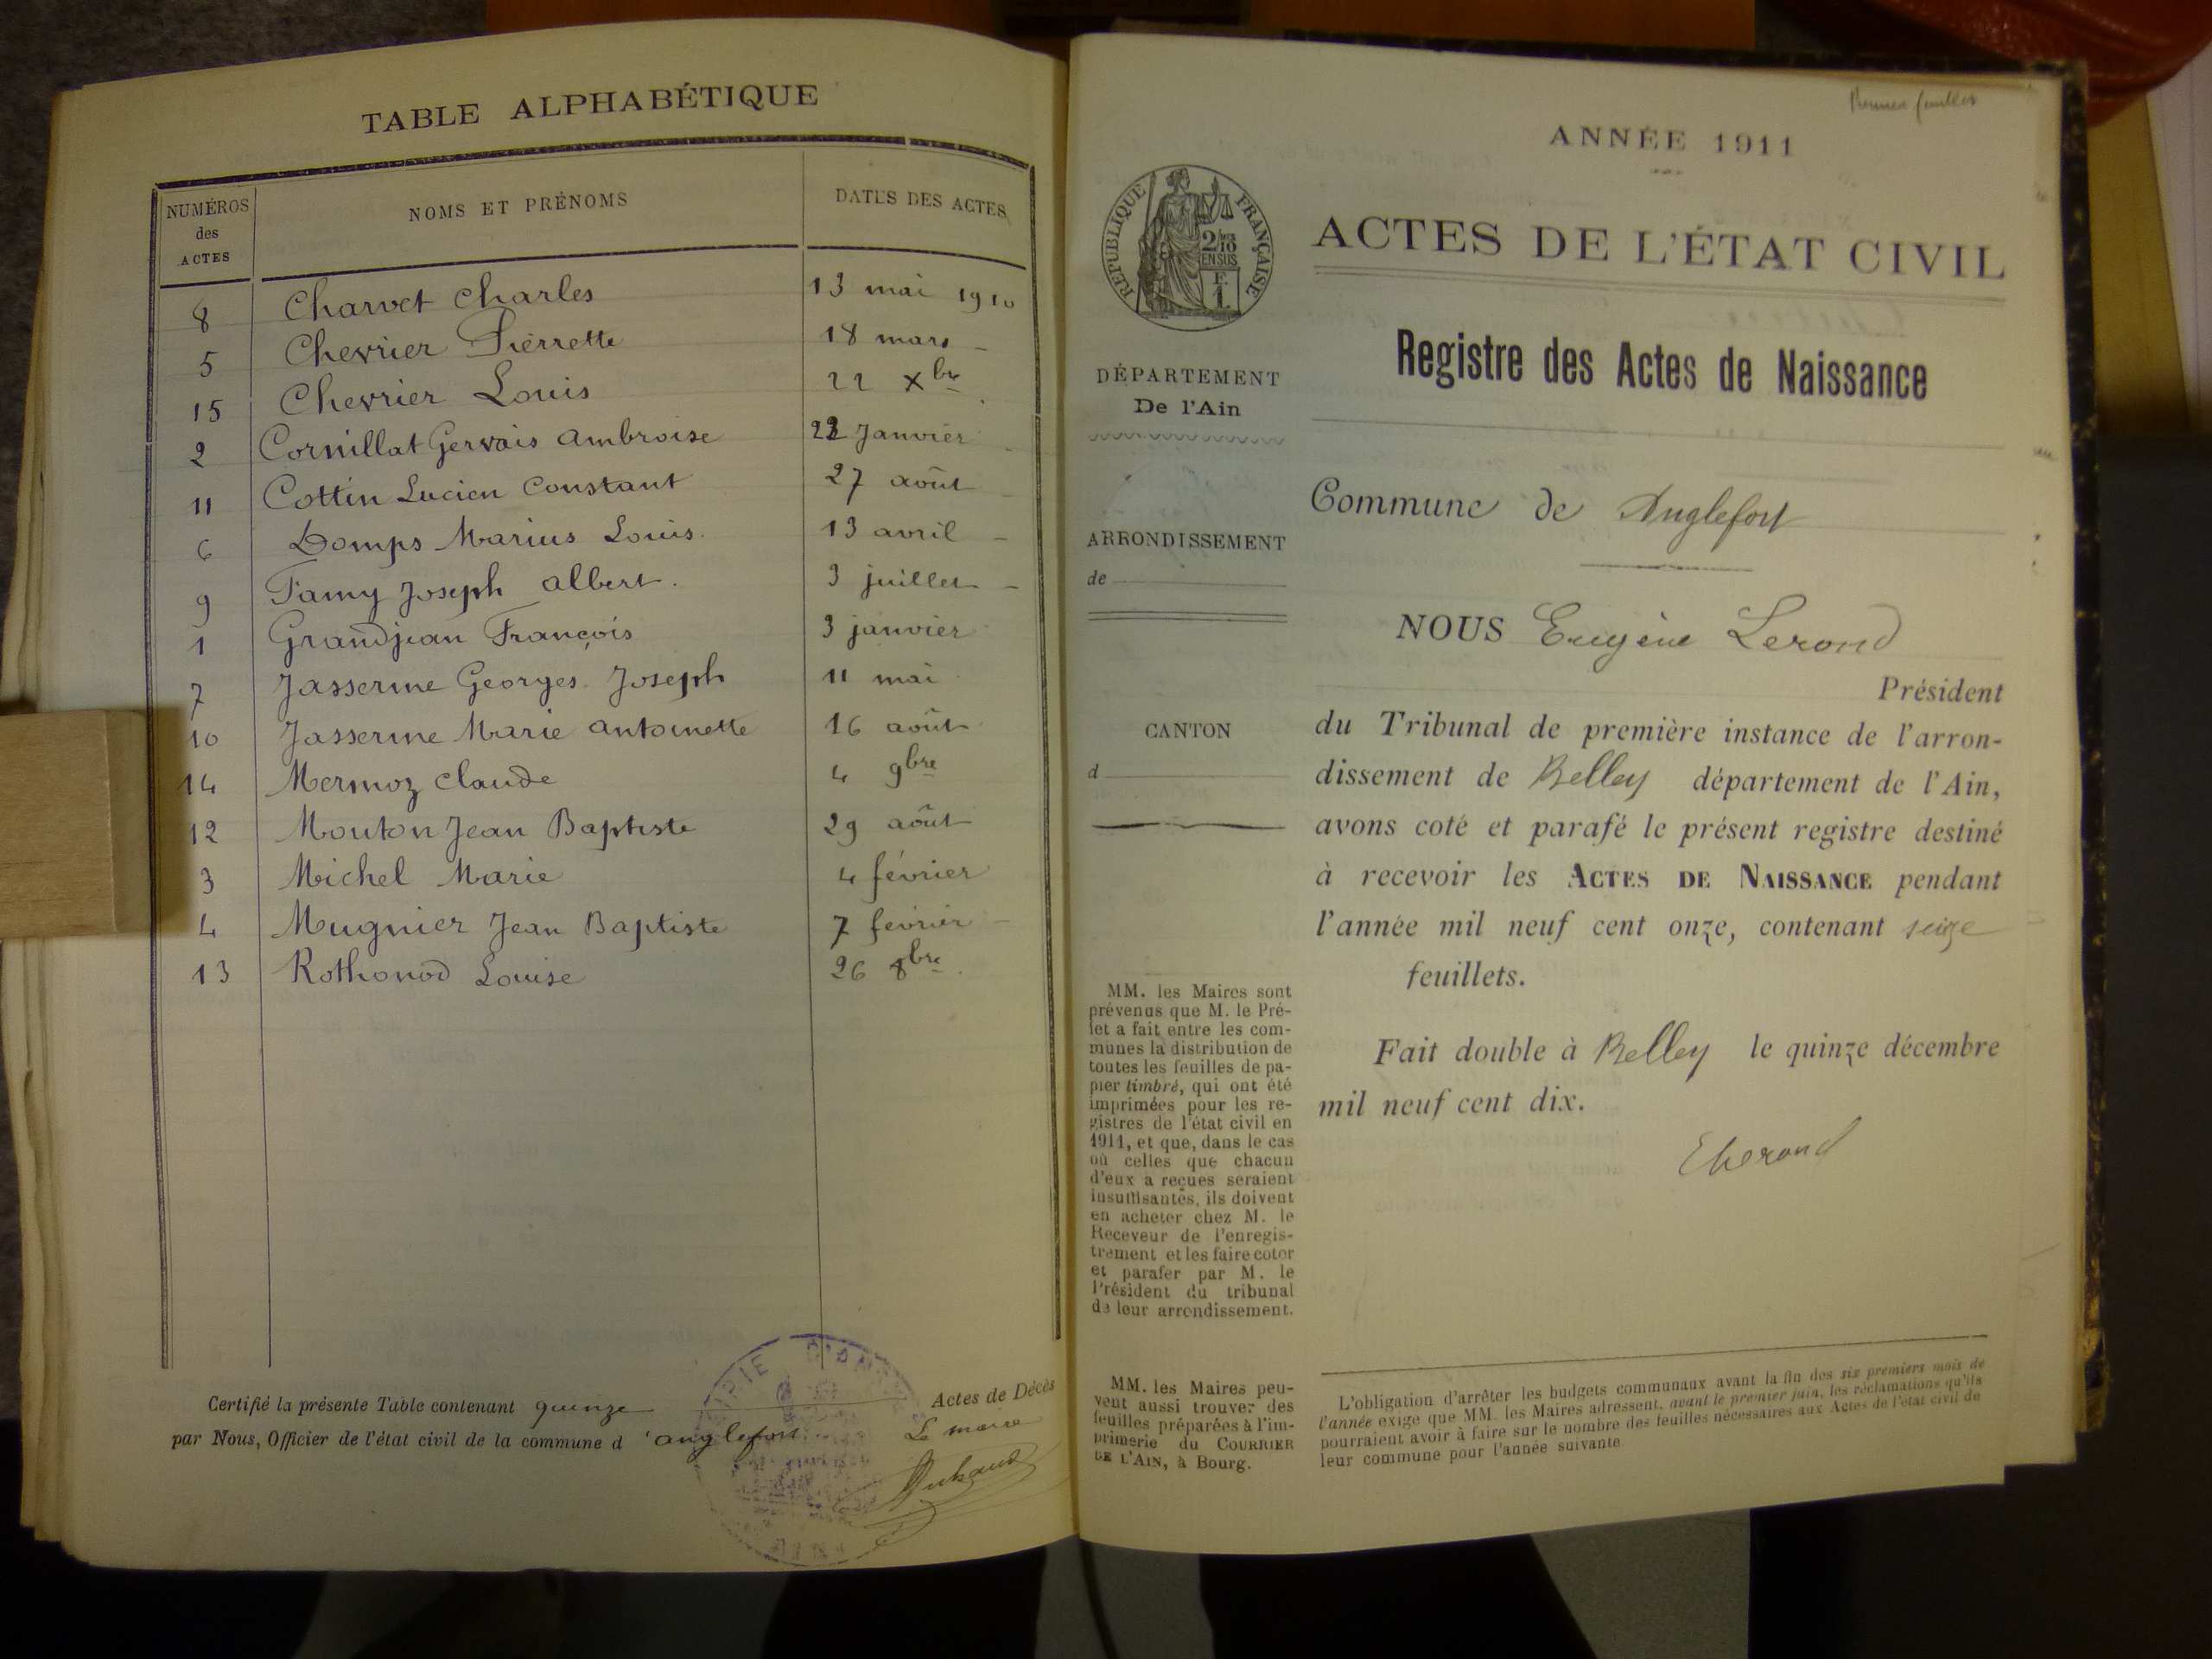 TABLE ALPHABÉTIQUE
NUMÉROS des ACTES
NOMS ET PRÉNOMS
DATES DES ACTES
8 Charvet Charles 13 mai 1910
5 Chevrier Pierrette 18 mars -
15 Chevrier Louis 22 Xbre
2 Cornillat Gervais Ambroise 22 Janvier
11 Cottin Lucien Constant 27 août -
6 Domps Marius Louis. 13 avril -
9 Famy Joseph Albert. 3 juillet -
1 Grandjean François 3 janvier
7 Jasserme Georges Joseph 11 mai
10 Jasserme Marie Antoinette 16 août
14 Mermoz Claude 4 9bre
12 Mouton Jean Baptiste 29 août
3 Michel Marie 4 février
4 Mugnier Jean Baptiste 7 février -
13 Rothonod Louise 26 8bre
Certifié la présente Table contenant quinze Actes de Décès
par Nous, Officier de l'état civil de la commune d'anglefort. Le maire
MAIRIE
Premier feuillet
ANNÉE 1911
RÉPUBLIQUE FRANÇAISE
2/10 EN SUS
F. 1.
ACTES DE L'ÉTAT CIVIL
Registre des Actes de Naissance
DÉPARTEMENT
De l'Ain
ARRONDISSEMENT
de
CANTON
d
Commune de Anglefort
NOUS Eugène Lerond
Président
du Tribunal de première instance de l'arron-
dissement de Belley département de l'Ain,
avons coté et parafé le présent registre destiné
à recevoir les ACTES DE NAISSANCE pendant
l'année mil neuf cent onze, contenant seize
feuillets.
Fait double à Belley le quinze décembre
mil neuf cent dix.
ELerond
MM. les Maires sont
prévenus que M. le Pré-
fet a fait entre les com-
munes la distribution de
toutes les feuilles de pa-
pier timbré, qui ont été
imprimées pour les re-
gistres de l'état civil en
1911, et que, dans le cas
où celles que chacun
d'eux a reçues seraient
insuffisantes, ils doivent
en acheter chez M. le
Receveur de l'enregis-
trement et les faire coter
et parafer par M. le
Président du tribunal
de leur arrondissement.
MM. les Maires peu-
vent aussi trouver des
feuilles préparées à l'im-
primerie du COURRIER
DE L'AIN, à Bourg.
L'obligation d'arrêter les budgets communaux avant la fin des six premiers mois de
l'année exige que MM. les Maires adressent, avant le premier juin, les réclamations qu'ils
pourraient avoir à faire sur le nombre des feuilles nécessaires aux Actes de l'état civil de
leur commune pour l'année suivante